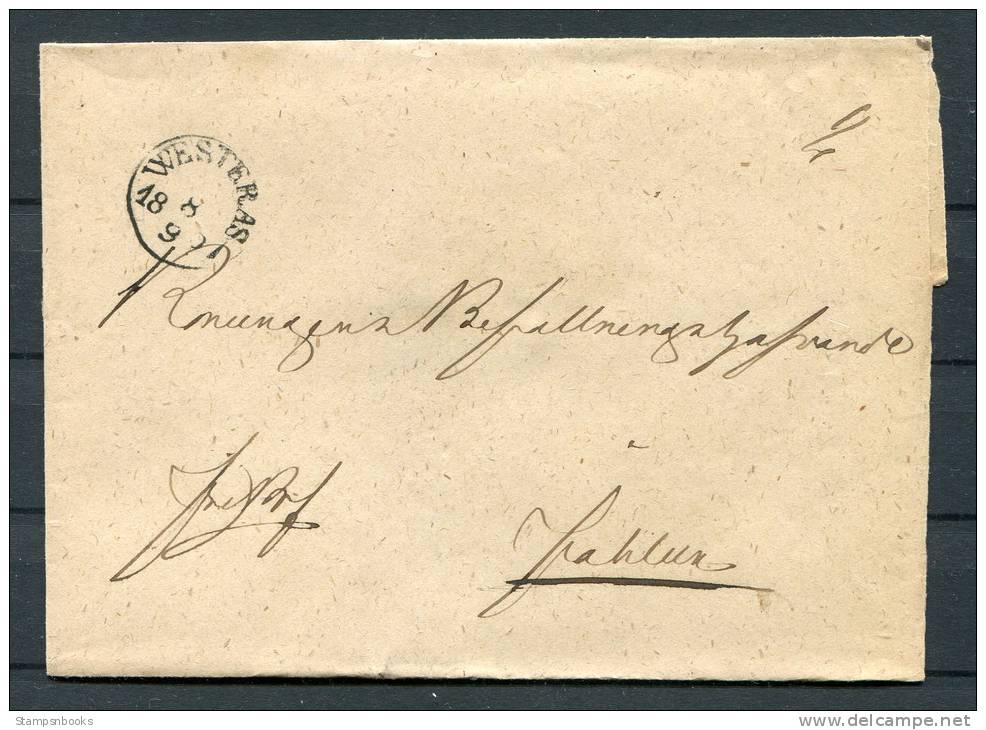 WESTERAS
18 8
9
Konungens Befallningshafvande
Fribref
Fahlun
Stampsnbooks
www.delcampe.net